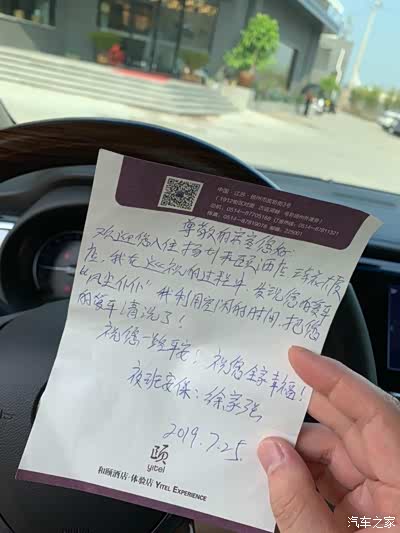 中国·江苏·扬州市盐阜路3号
尊敬的宾客您好
欢迎您入住扬州和颐酒店
店,我在巡视的过程中发现您的爱车
"风尘仆仆"我利用空闲的时间,把您
的爱车清洗了!
祝您一路平安!祝您全家幸福!
夜班安保:徐家强
2019.7.25
颐
yitel
和颐酒店·体验店 YITEL EXPERIENCE
汽车之家